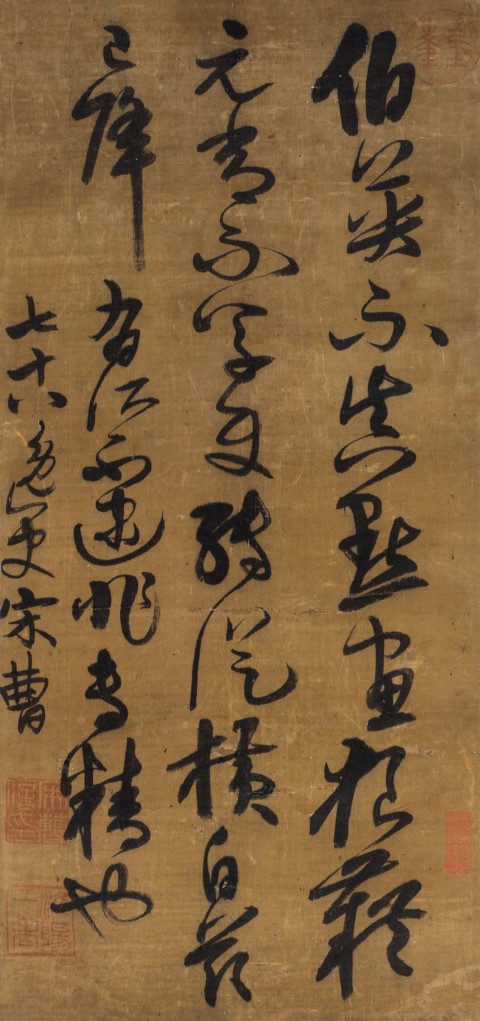 伯英不真點畫狼藉
元常不草使轉縱橫自茲
已降有所不逮非專精也
七十八逸叟宋曹